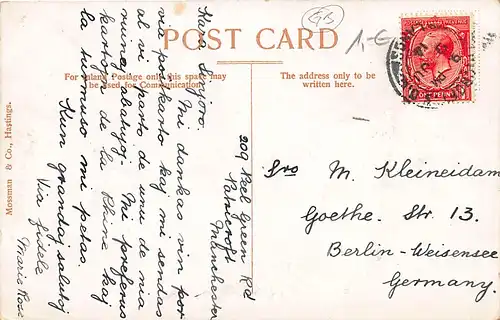 POST CARD
For Inland Postage only this space may
be used for Communication.
The address only to be
written here.
Mossman & Co., Hastings.
GB
1,-€
POSTAGE REVENUE
ONE PENNY
209 Peel Green Rd
Patricroft
Manchester
Kara Sinjoro.
Mi dankas vin por
via poŝkarto kaj mi sendas
al vi karto de unu de nia
ruinaj abatujoj. Mi preferus
kartojn de la Rhine kaj
la turmuso mi petas.
Kun grandaj salutoj
Via fidele
Marie Rose
Sro M. Kleineidam
Goethe. Str 13.
Berlin-Weisensee
Germany.